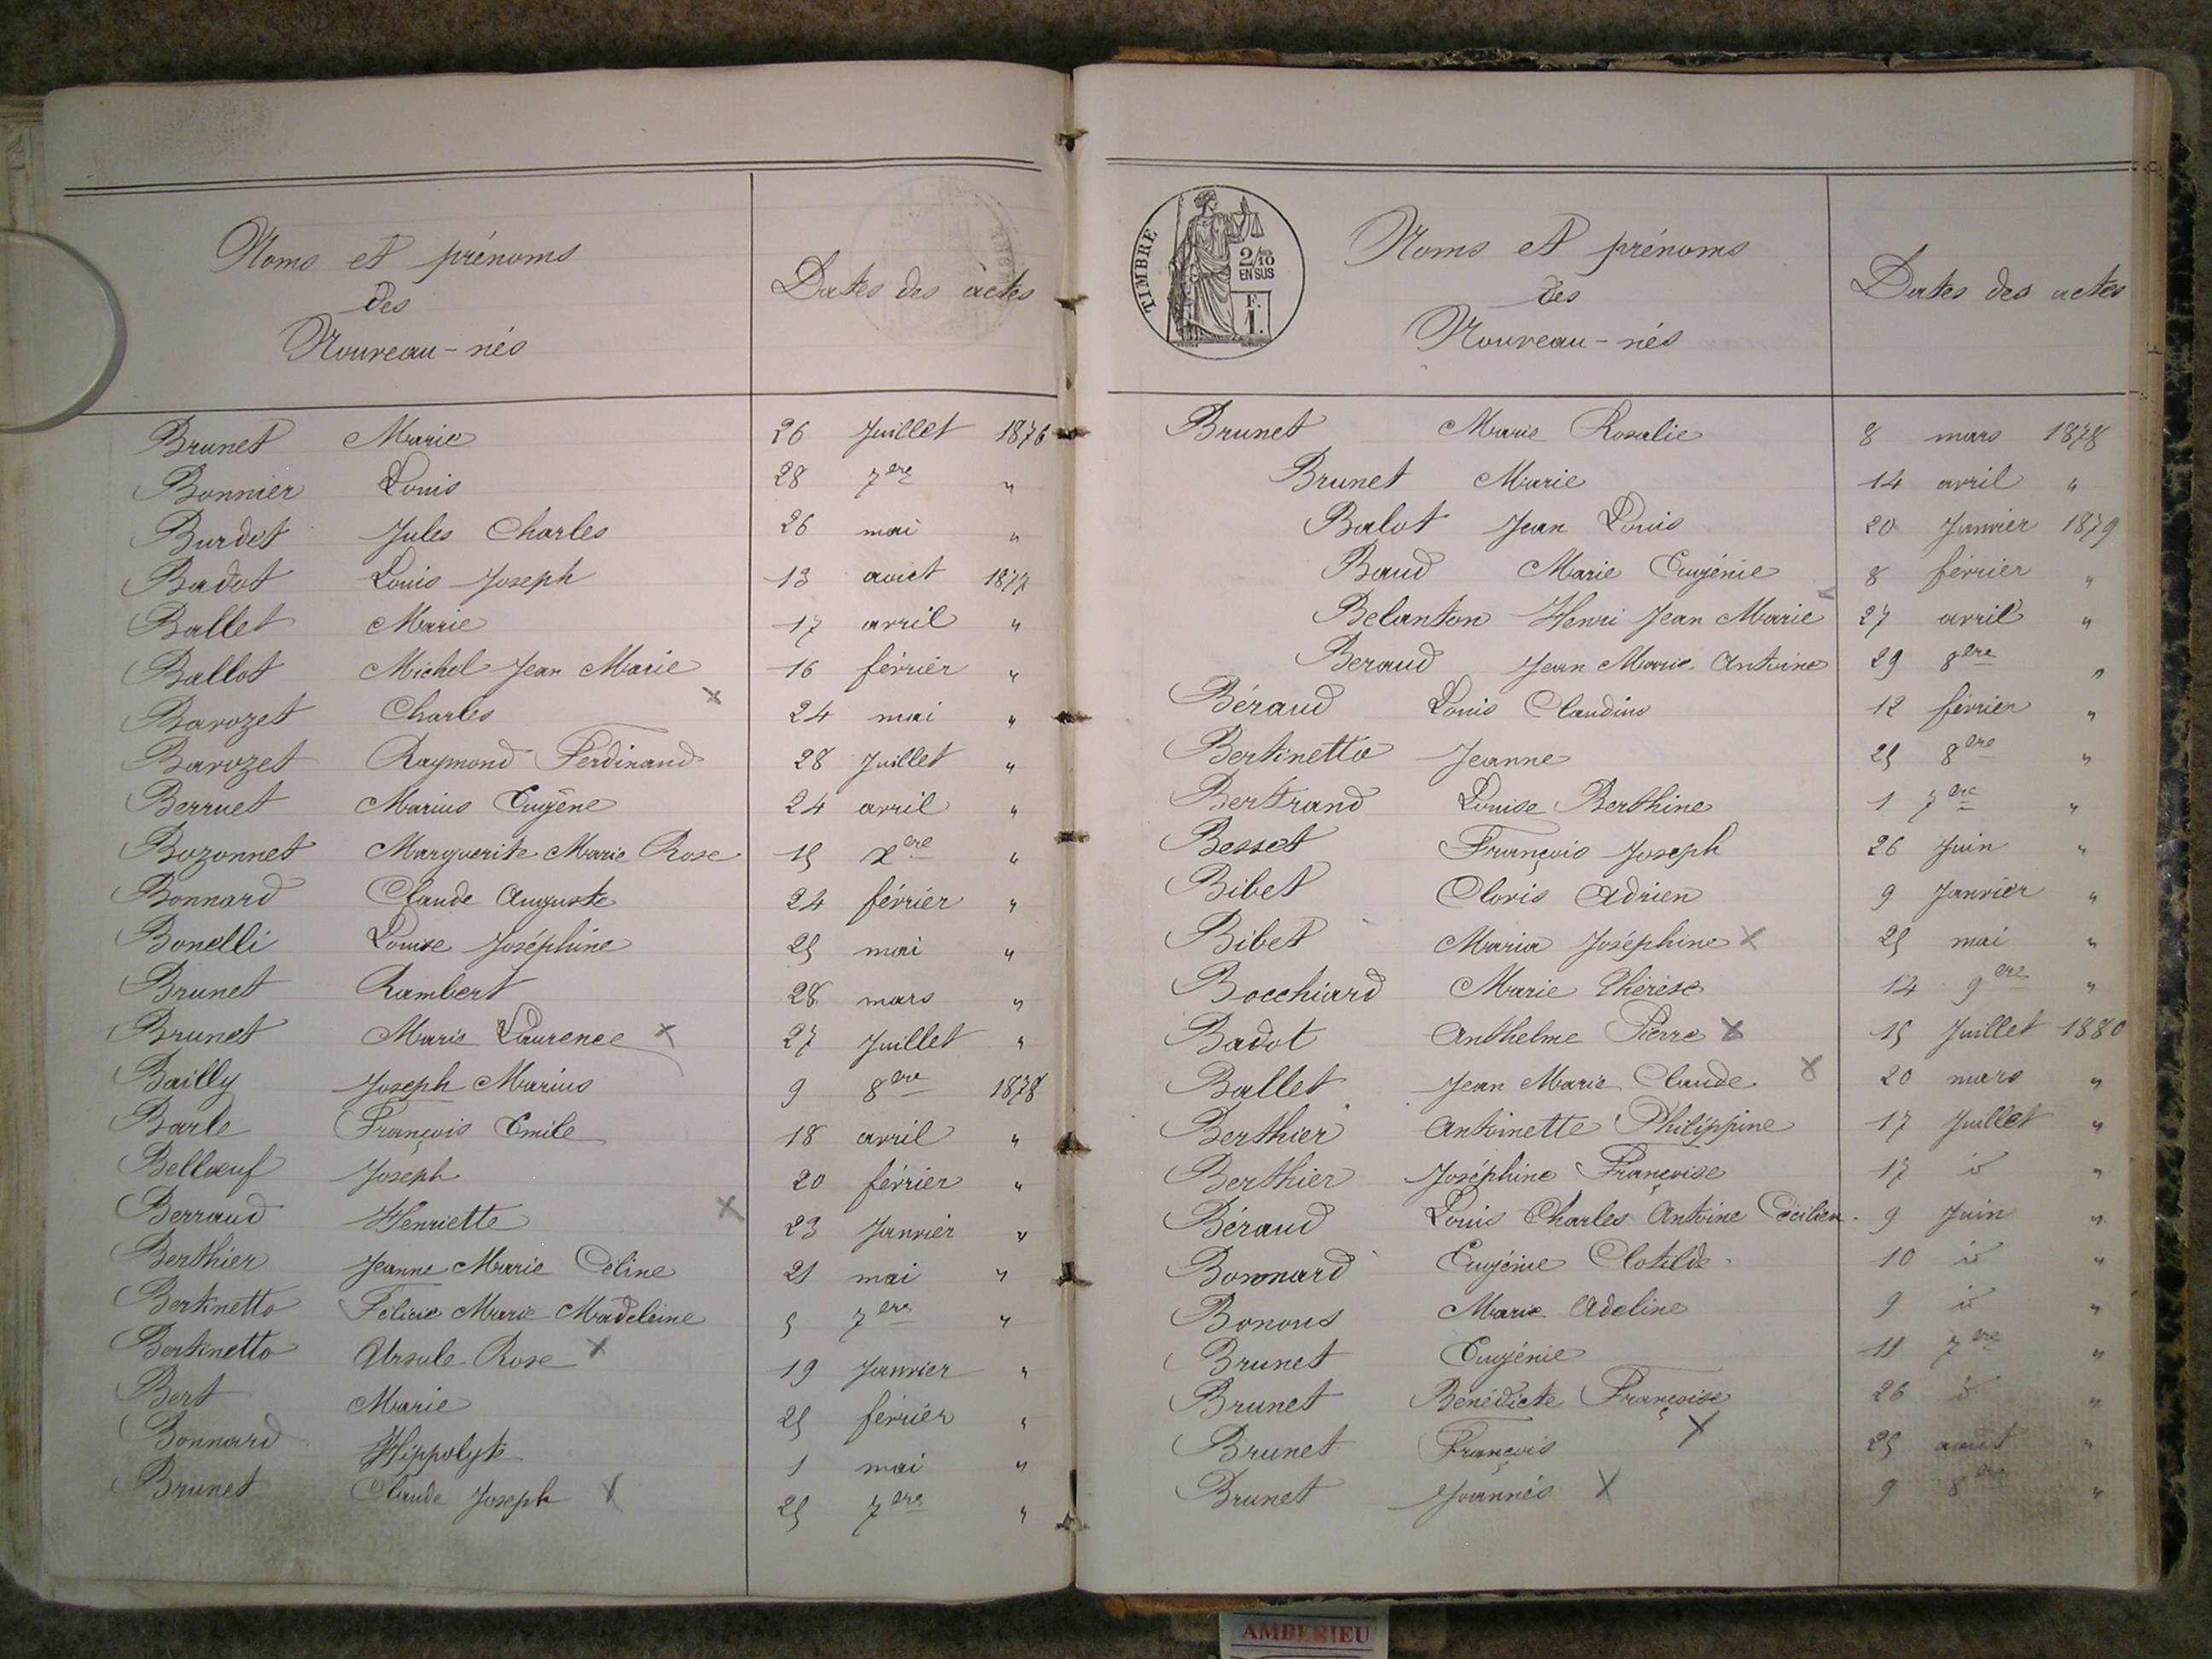 Noms et prénoms
des
Nouveau-nés
Dates des actes
Brunet Marie 26 Juillet 1876
Bonnier Louis 28 7ere "
Burdet Jules Charles 26 mai "
Badot Louis Joseph 13 aout 1877
Ballet Marie 17 avril "
Ballot Michel Jean Marie 16 février "
Barozet Charles x 24 mai "
Barozet Raymond Ferdinand 28 Juillet "
Berruet Marius Eugène 24 avril "
Bozonnet Marguerite Marie Rose 15 Xere "
Bonnard Claude Auguste 24 février "
Bonelli Louise Joséphine 25 mai "
Brunet Rambert 28 mars "
Brunet Marie Laurence x 27 Juillet "
Bailly Joseph Marius 9 8ere 1878
Barle François Emile 18 avril "
Bellœuf Joseph 20 février "
Berraud Henriette x 23 Janvier "
Berthier Jeanne Marie Céline 21 mai "
Bertinetto Félicie Marie Madeleine 5 7ere "
Bertinetto Ursule Rose x 19 Janvier "
Bert Marie 25 février "
Bonnard Hippolyte 1 mai "
Brunet Claude Joseph x 25 7ere "
TIMBRE
2/10
EN SUS
F.
1.
Noms et prénoms
des
Nouveau-nés
Dates des actes
Brunet Marie Rosalie 8 mars 1878
Brunet Marie 14 avril "
Balot Jean Louis 20 Janvier 1879
Baud Marie Eugénie 8 février "
Belanton Henri Jean Marie 27 avril "
Beraud Jean Marie Antoine 29 8ere "
Béraud Louis Claudius 12 février "
Bertinetto Jeanne 25 8ere "
Bertrand Louise Berthine 1 7ere "
Besset François Joseph 26 Juin "
Bibet Clovis Adrien 9 Janvier "
Bibet Maria Joséphine x 25 mai "
Bocchiard Marie Thérèse 14 9ere "
Badot Anthelme Pierre x 15 Juillet 1880
Ballet Jean Marie Claude x 20 mars "
Berthier Antoinette Philippine 17 Juillet "
Berthier Joséphine Françoise 17 id "
Béraud Louis Charles Antoine Cécilien 9 Juin "
Bonnard Eugénie Clotilde 10 id "
Bonous Marie Adeline 9 id "
Brunet Eugénie 11 7ere "
Brunet Bénédicte Françoise 26 id "
Brunet François x 25 aout "
Brunet Joannés x 9 8ere "
AMBERIEU